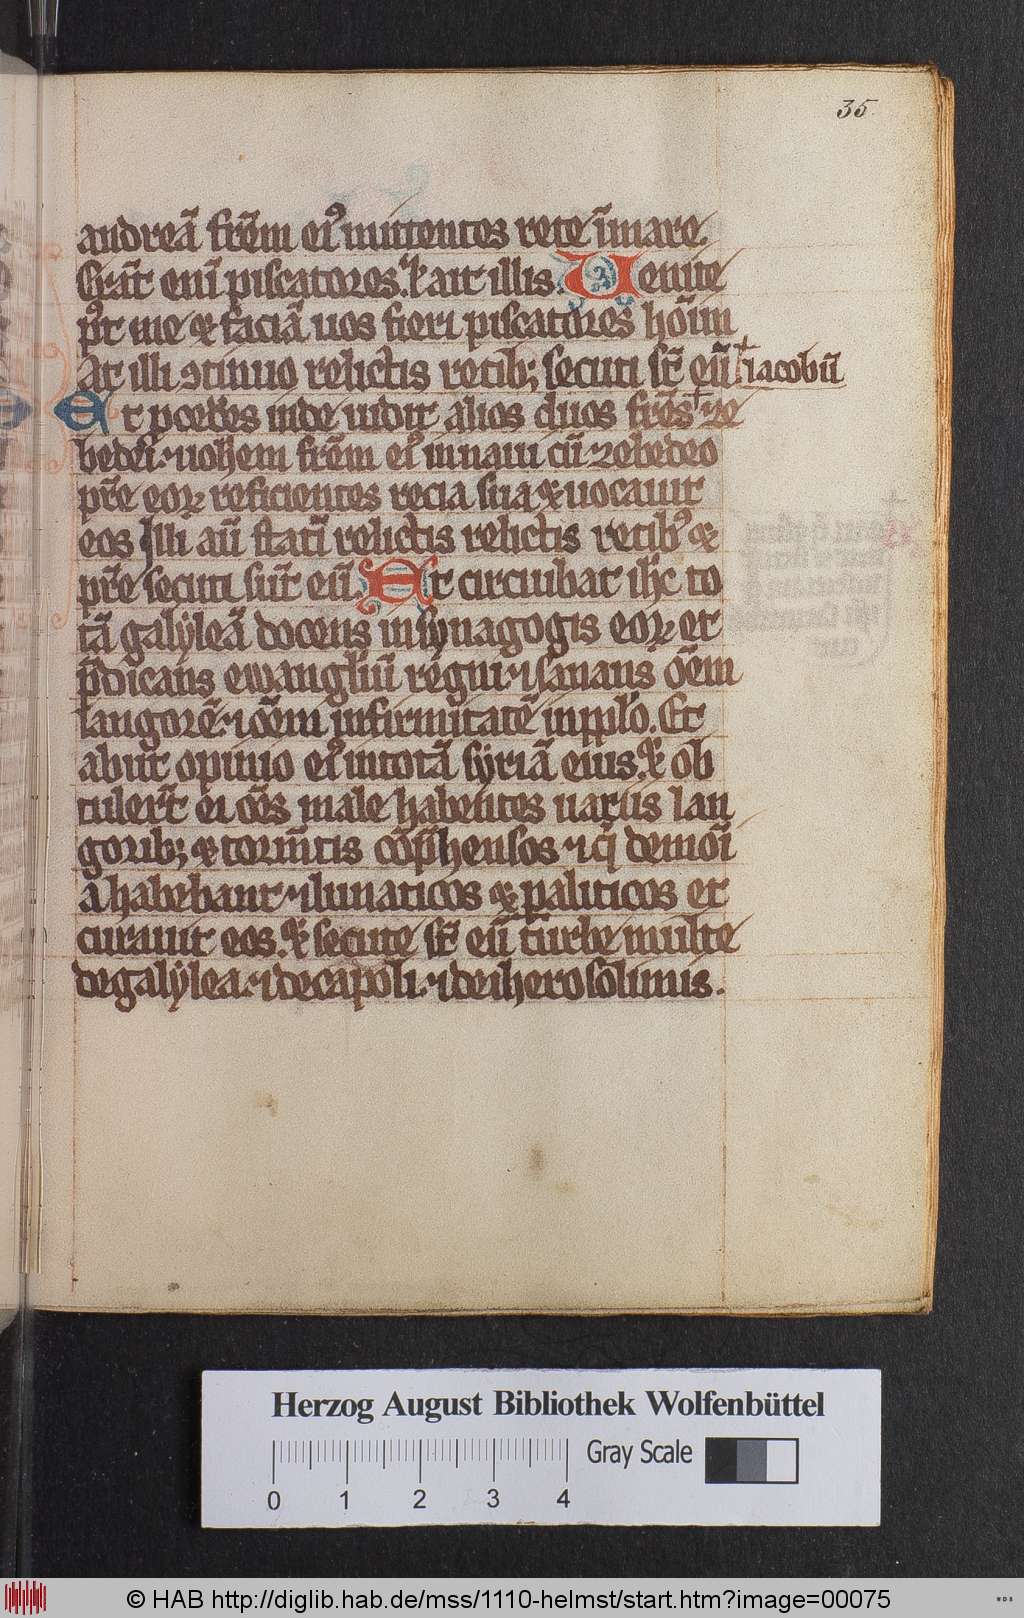 35
andreā frēm ei⁹ mittentes rete ī mare.
Erāt eni piscatores. ⁊ ait illis. Uenite
p⁹t me ⁊ faciā uos fieri piscatores hoīm
At illi ꝯtinuo relictis retib; secuti sť eū ✝iacobū
Et pcedēs inde uidit alios duos frēs✝ze
bedei. ⁊ iohem frēm ei⁹ in naui cū zebedeo
pr̄e eoꝝ reficientes recia sua ⁊ uocauit
eos Illi aū statī relictis relictis retib⁹ ⁊
pr̄e secuti sūt eū. Et circuibat ihc to
tā galyleā docens in synagogis eoꝝ et
p̄dicans ewangliū regni ⁊ sanans oēm
langorē ⁊ oēm infirmitatē in pplo. Et
abiit opinio ei⁹ in totā syriā eius. ⁊ ob
tulerūt ei oēs male habentes uariis lan
gorib; ⁊ tormītis cōp̄hensos ⁊ q̄ demoī
a habebant ⁊ lunaticos ⁊ paliticos et
curauit eos. ⁊ secute sť eū turbe multe
de galylea. ⁊ decapoli. ⁊ de iherosolimis.
Herzog August Bibliothek Wolfenbüttel
Gray Scale
0 1 2 3 4
© HAB http://diglib.hab.de/mss/1110-helmst/start.htm?image=00075